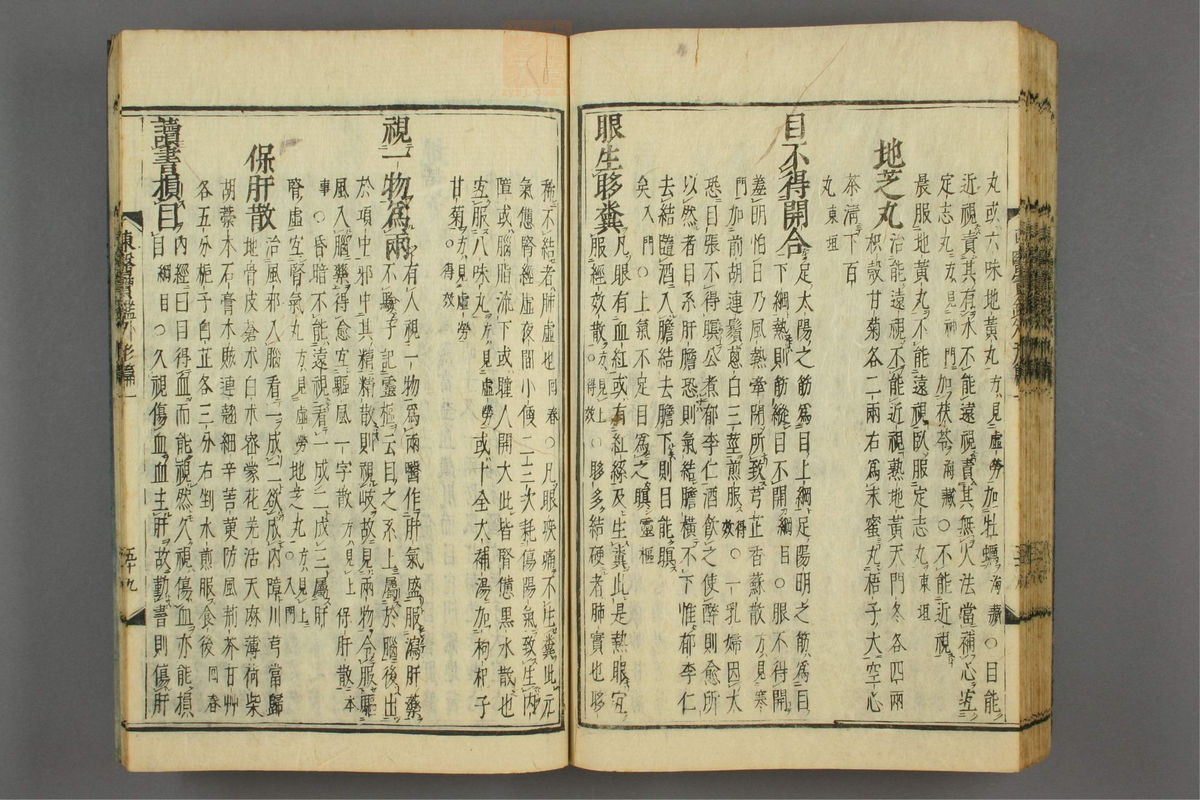 丸或六味地黃丸方見虛勞加牡蠣海藏○目能
近視責其有水不能遠視責其無火法當補心宜
定志丸方見神門加茯苓海藏○不能近視
晨服地黃丸不能遠視臥服定志丸東垣
地芝丸
治能遠視不能近視熟地黃天門冬各四兩
枳殼甘菊各二兩右爲末蜜丸梧子大空心
茶淸下百
丸東垣
目不得開合
足太陽之筋爲目上綱足陽明之筋爲目
下綱熱則筋縱目不開綱目○眼不得開
羞明怕日乃風熱牽閉所致芎芷香蘇散方見寒
門加前胡連鬚葱白三莖煎服得效○一乳婦因大
恐目張不得瞑公煮郁李仁酒飮之使醉則愈所
以然者目系肝膽恐則氣結膽橫不下惟郁李仁
去結隨酒入膽結去膽下則目能瞑
矣入門○上氣不足目爲之瞑靈樞
眼生眵糞
凡眼有血紅或有紅絲及生糞此是熱眼宜
服經效散方見上得效○眵多結硬者肺實也眵
稀不結者肺虛也回春○凡眼疾痛不住糞此元
氣憊腎經虛夜間小便二三次耗傷陽氣致生內
障或腦脂流下或瞳人開大此皆腎憊黑水散也
宜服八味丸方見虛勞或十全大補湯加枸杞子
甘菊方見虛勞
○得效
視一物爲兩
有人視一物爲兩醫作肝氣盛服瀉肝藥
不驗孫子記靈樞云目之系上屬於腦後出
於項中邪中其精精散則視岐故見兩物令服驅
風入腦藥得愈宜驅風一字散方見上保肝散本
事○昏暗不能遠視看一成二成三屬肝
腎虛宜腎氣丸方見虛勞地芝丸方見上○入門
保肝散
治風邪入腦看一成二欲成內障川芎當歸
地骨皮蒼朮白朮密蒙花羌活天麻薄荷柴
胡藁本石膏木賊連翹細辛苦莄防風荊芥甘艸
各五分梔子白芷各三分右剉水煎服食後回春
讀書損目
內經曰目得血而能視然久視傷血亦能損
目綱目○久視傷血血主肝故勤書則傷肝
東醫寶鑑 外形篇一
五十九